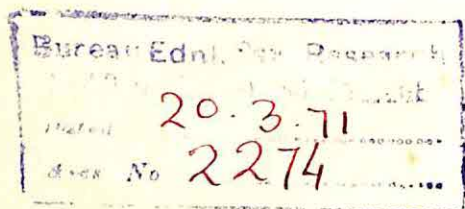 Bureau Ednl. Psy. Research
Dated 20.3.71
Accs No 2274